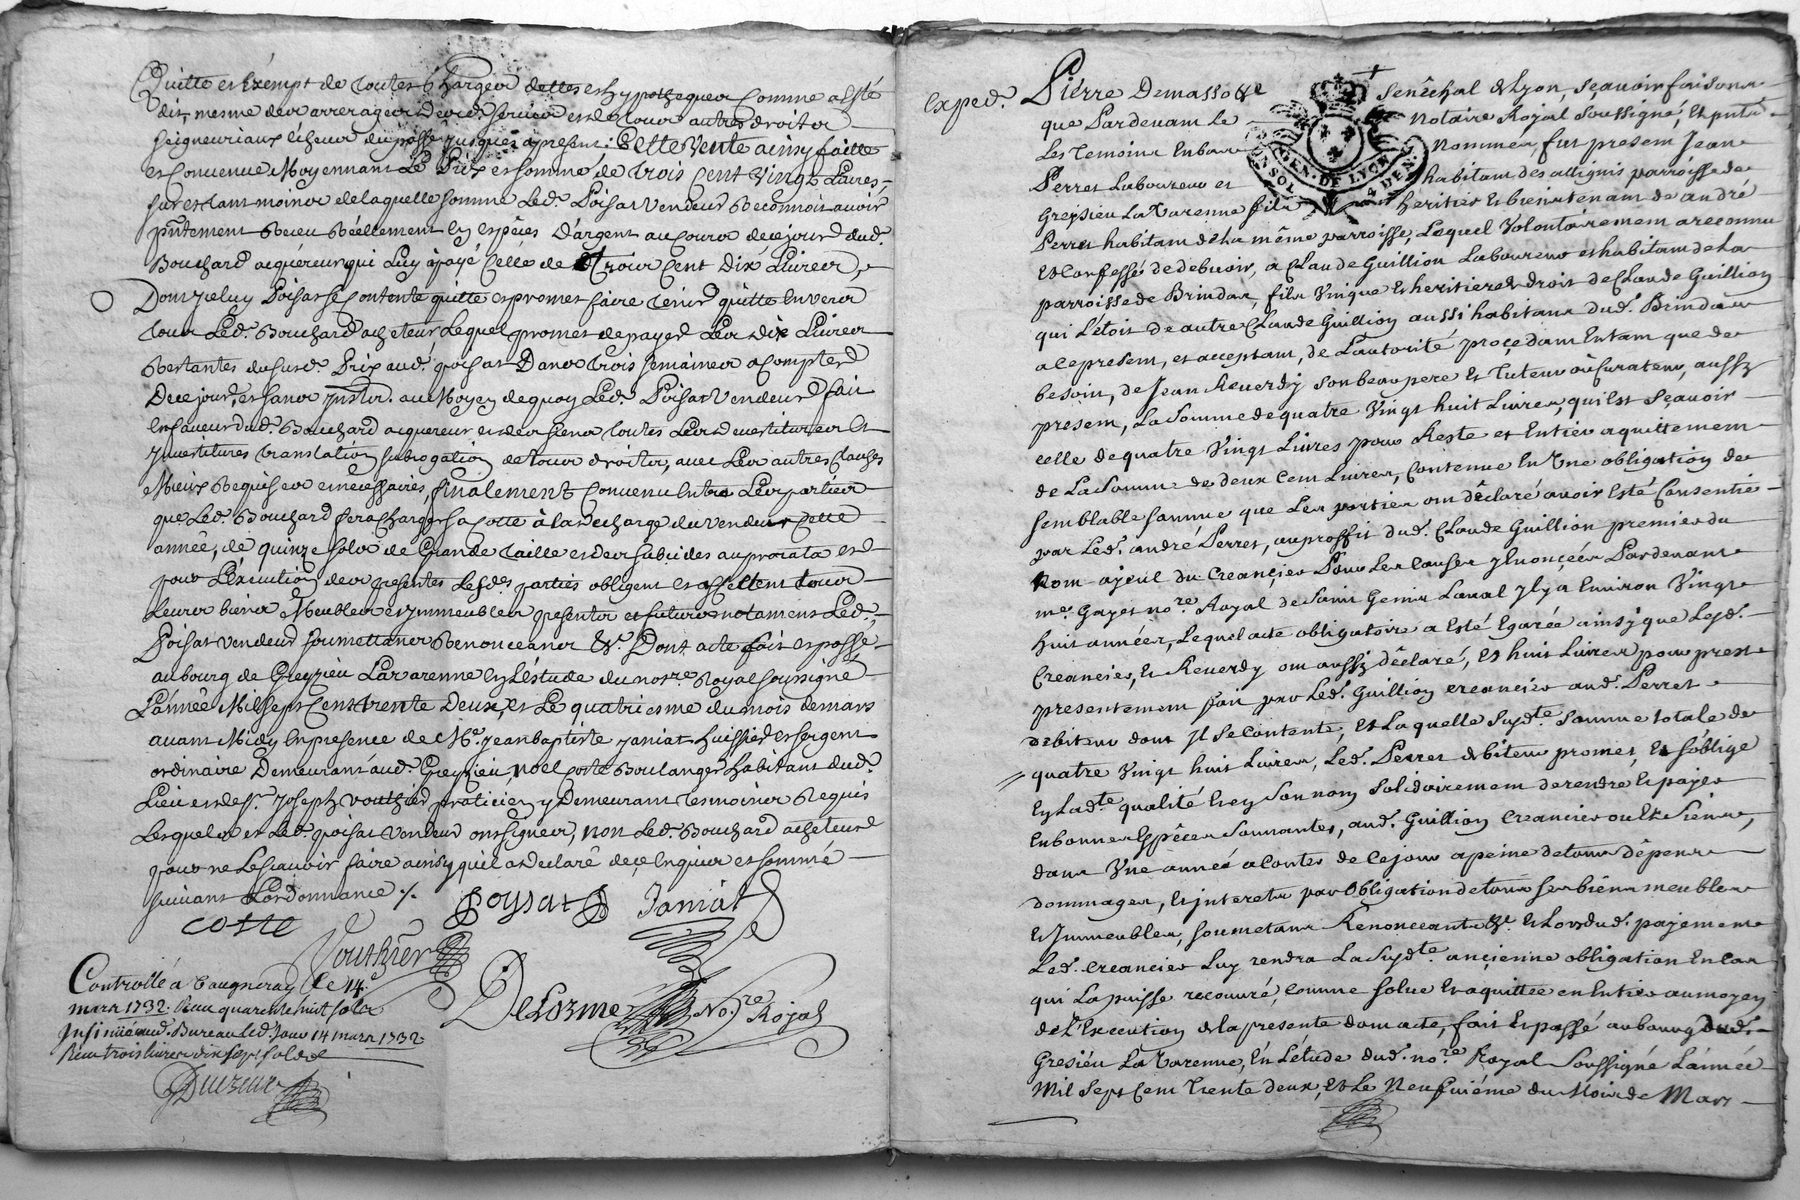 Quitte et Exempt de toutes Charges dettes et hypotheques Comme a esté
dit, mesme des arrerages decid. servis et de tous autres droits
seigneuriaux écheus du passé jusques apresent; Cette Vente ainsy faitte
et Convenue Moyennant Le Prix et somme de trois Cent Vingt Livres,
sur et tant moins de laquelle somme Led. Poisat Vendeur Reconnoit avoir
pntement Receu Réellement En espèces D'argent au Cours de ce jour dud.
Bouchard acquéreur qui Luy a payé Celle de trois Cent Dix Livres,
Dont iceluy Poisat se Contente quitte et promet faire tenir quitte Envers
tous Led. Bouchard acheteur Lequel promet de payer Les dix Livres
Restantes du susd. Prix aud. poisat Dans trois semaines a Compter
De ce jour, et sans au Moyen de quoy Led. Poisat Vendeur fait
En faveur dud. Bouchard acquereur et des siens toutes Les devestitures Et
investitures translation subrogation de tous droits, avec Les autres Clauses
Mieux Requises et nécessaires, finalement Convenu Entre Les parties
que Led. Bouchard sera Chargé sa cotte à la decharge du vendeur Cette
année, de quinze sols de Grande taille et des subsides au prorata et
pour L'éxécution des presentes Lesdes parties obligent et affectent tous
Leurs biens Meubles et Immeubles presents et futurs notament Led.
Poisat vendeur soumettans Renonceans &c. Dont acte fait et passé
au bourg de Greyzieu Lavarenne En L'éstude du notre Royal soussigné
L'année Mil sept Cent trente Deux, et Le quatriesme du mois de mars
avant Midy En presence de Me. jean baptiste janiat huissier et sergent
ordinaire Demeurant aud. Greyzieu, noel coste Boulanger habitant dud.
Lieu et de sr. joseph vouthier praticien y Demeurant tesmoins Requis
Lesquels et Led. poisat vendeur ont signer, non Led. Bouchard acheteur
pour ne Le sçavoir faire ainsy quil a Declaré de ce Enquis et sommé
suivant L'ordonnance ./.
coste
Poysat
Janiat
Vouthier
Delorme Nore Royal
Controllé a Vaugneray Le 14e
mars 1732. Reçu quarente huit sols
Insinüé aud. Bureau Led. Jour 14 mars 1732
Reçu trois livres dix sept sols
Exped.
Pierre Demasso &c
Senéchal de Lyon, sçavoir faisons
que Pardevant Le
Notaire Royal soussigné, Et
Les Temoins En bas
Nommés, fut present Jean
GEN. DE LYON
N SOL
4 DEN.
Perret Laboureur et
habitant des allignis parroisse de
Greysieu La Varenne fils
héritier Et bientenant de andré
Perret habitant de la même parroisse, Lequel Volontairement a reconnu
Et Confessé de debvoir, a Claude Guillion Laboureur et habitant de la
parroisse de Brindas, fils Unique Et heritier de droit de Claude Guillion
qui L'étoit de autre Claude Guillion aussi habitant dud. Brindas
a ce present, et acceptant, de L'autorité procedant Entant que de
besoin, de Jean Reverdy son beaupere Et Tuteur ou Curateur, aussy
present, La somme de quatre Vingt huit Livres, qui Est sçavoir
celle de quatre Vingt Livres pour Reste et Entier aquittement
de La somme de deux Cent Livres, Contenue En Une obligation de
semblable somme que Les parties ont déclaré avoir Esté Consentie
par Led. andré Perret, au proffit dud. Claude Guillion premier du
nom ayeul du Creancier Pour Les Causes y Enoncées Pardevant
me. Gayet nore. Royal de Saint Genis Laval Il y a Environ Vingt
huit années, Lequel acte obligatoire a Esté Egarée ainsy que Lesd.
Creancier, Et Reverdy ont aussy déclaré, Et huit Livres pour prest
presentement fait par Led. Guillion creancier aud. Perret
debiteur dont Il se Contente, Et Laquelle susdte. somme totale de
quatre Vingt huit Livres, Led. Perret debiteur promet, Et s'oblige
En Ladte. qualité Et en son nom solidairement de rendre Et payer
En bonnes Espèces sonnantes, aud. Guillion creancier ou Et Siens,
dans Une année a Conter de Ce jour a peine de tous dépens
dommages, Et interets par Obligation de tous ses biens meubles
Et Immeubles, soumetant Renonceant &c. Et Lors dud. payement
Led. creancier Luy rendra La susdte. ancienne obligation En Cas
qui La puisse recouvré, comme solue Et aquittée en Entier au moyen
de L'Execution de la presente dont acte, fait Et passé au bourg dud.
Gresieu La Varenne, En L'étude dud. nore Royal Soussigné L'année
Mil Sept Cent Trente deux, Et Le Neufviéme du Mois de Mars